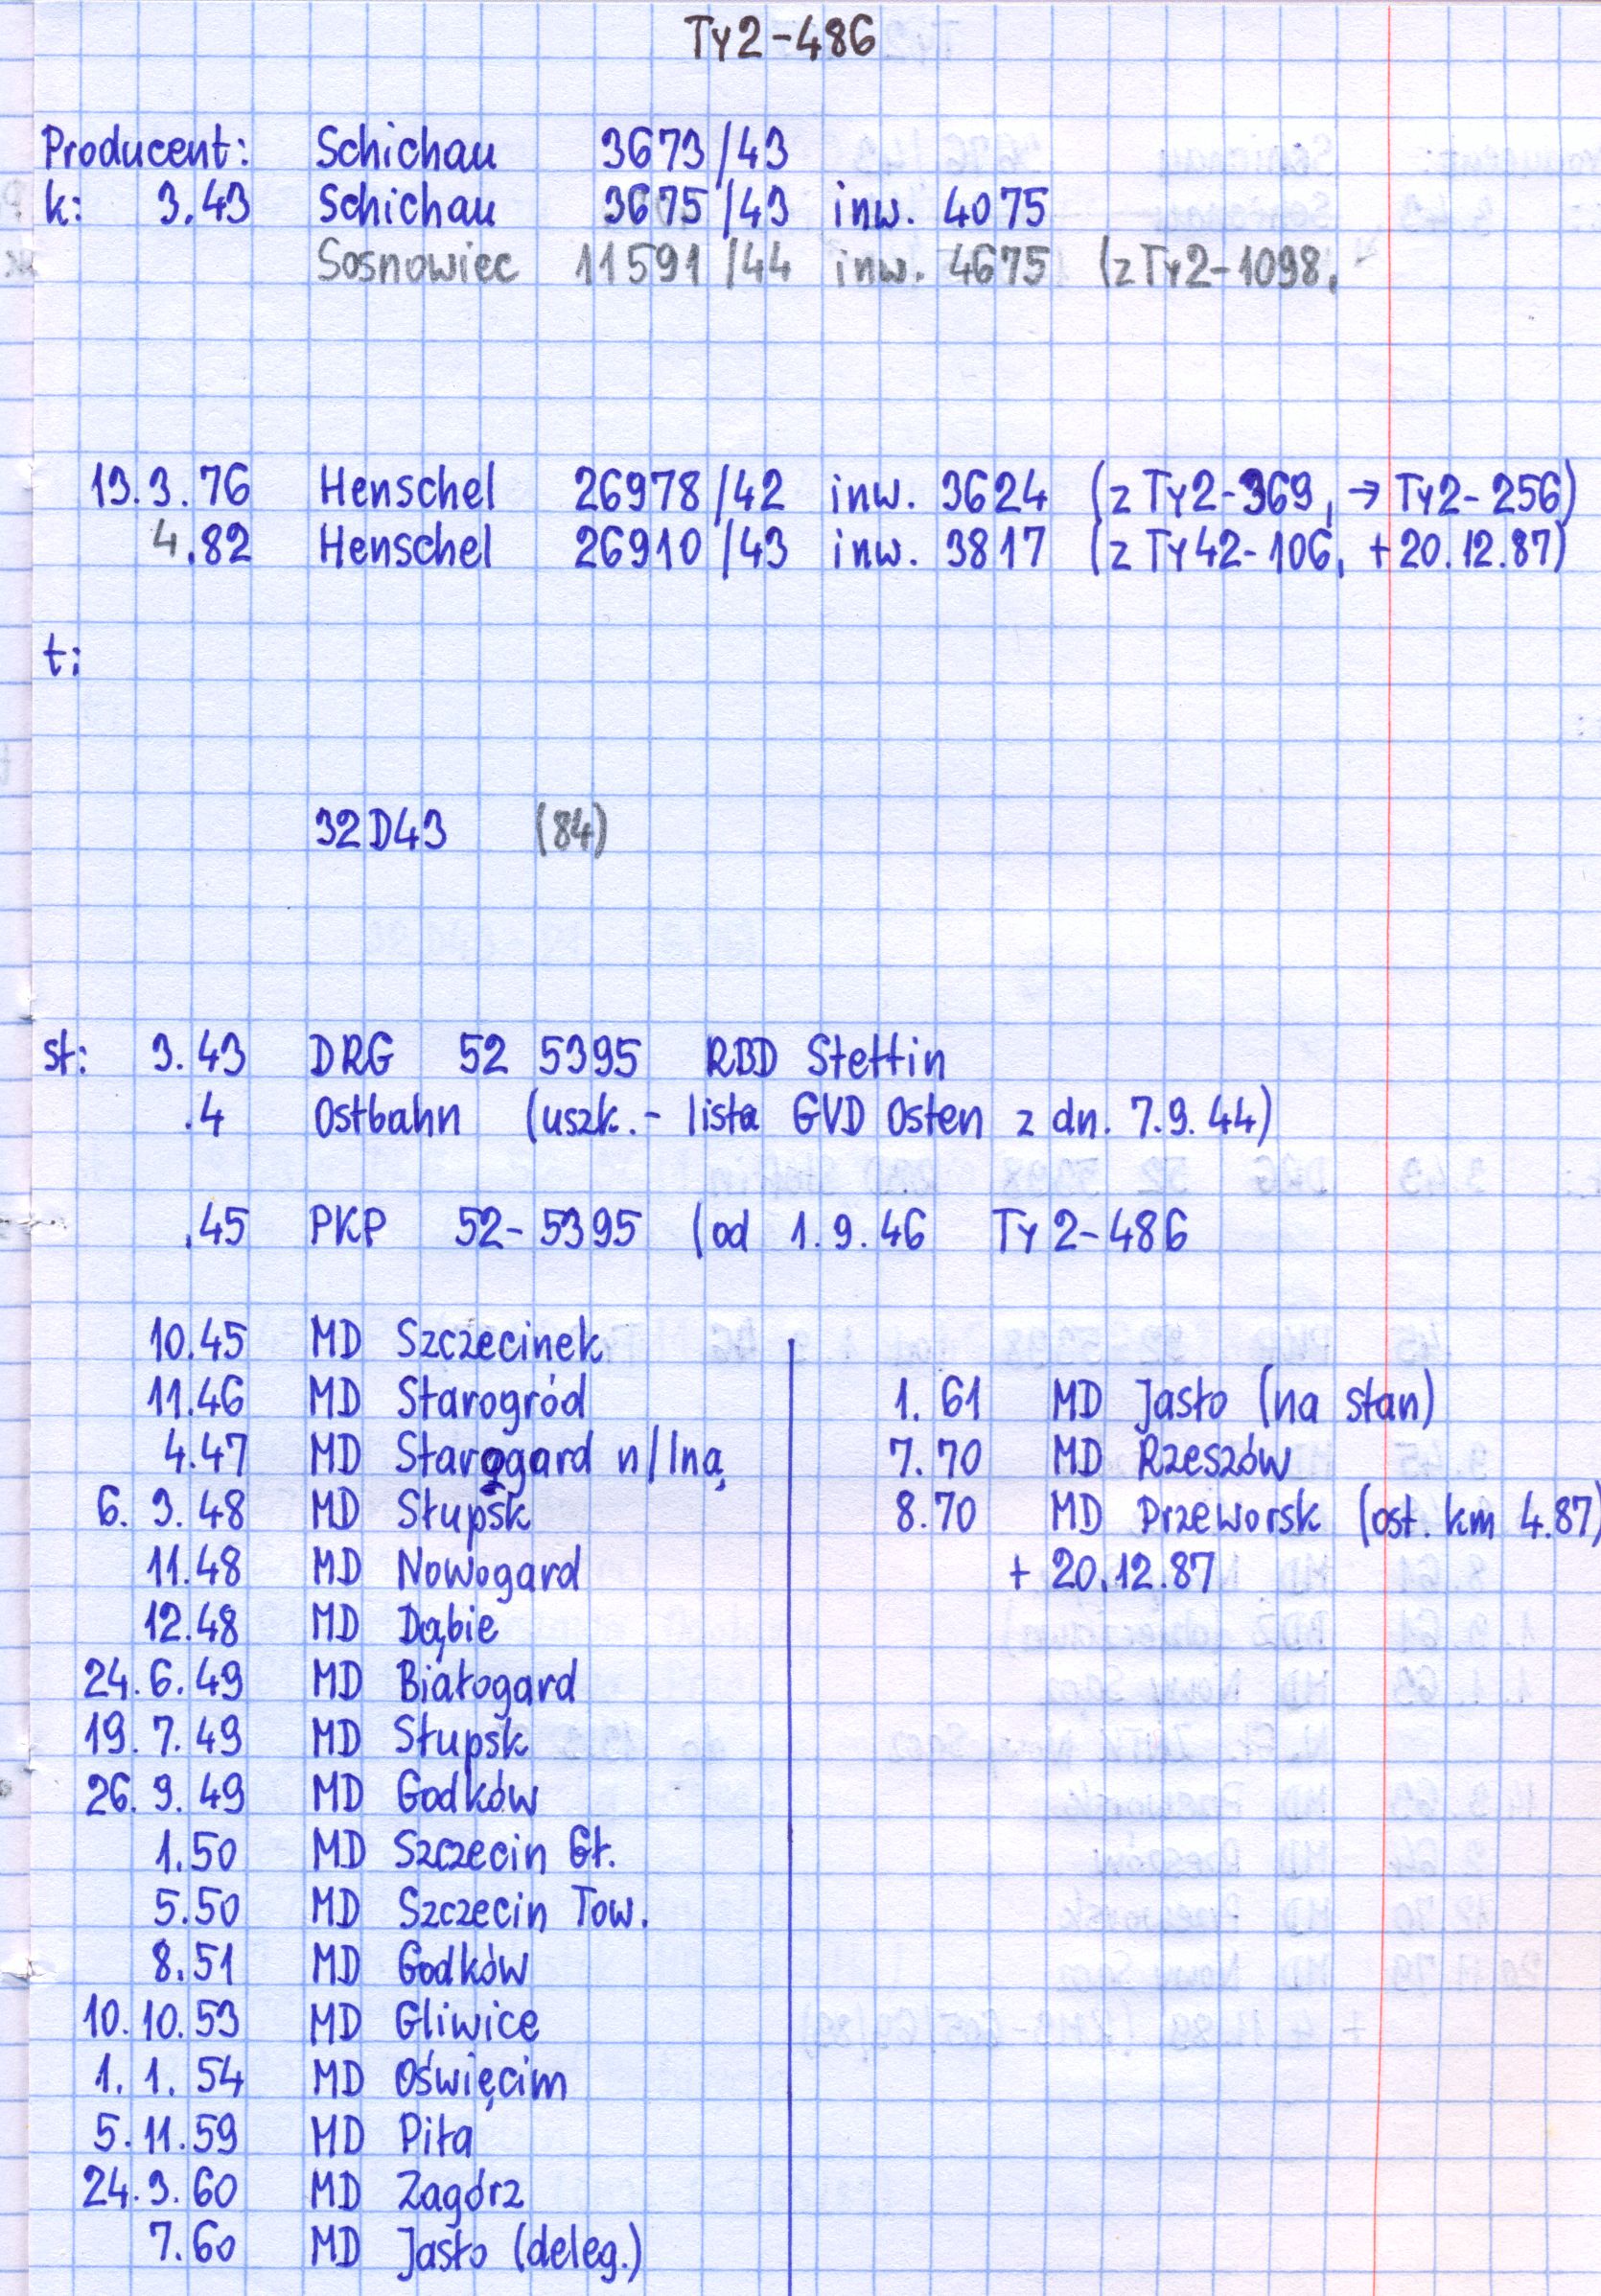 Ty2-486
Producent: Schichau 3673/43
k: 3.43 Schichau 3675/43 inw. 4075
Sosnowiec 11591/44 inw. 4675 (z Ty2-1098,
13.3.76 Henschel 26978/42 inw. 3624 (z Ty2-369, → Ty2-256)
4.82 Henschel 26910/43 inw. 3817 (z Ty42-106, +20.12.87)
t:
32D43 (84)
st: 3.43 DRG 52 5395 RBD Stettin
.4 Ostbahn (uszk.- lista GVD Osten z dn. 7.9.44)
.45 PKP 52-5395 (od 1.9.46 Ty2-486
10.45 MD Szczecinek
11.46 MD Starogród
4.47 MD Starogard n/Iną
6.3.48 MD Słupsk
11.48 MD Nowogard
12.48 MD Dąbie
24.6.49 MD Białogard
19.7.49 MD Słupsk
26.9.49 MD Godków
1.50 MD Szczecin Gł.
5.50 MD Szczecin Tow.
8.51 MD Godków
10.10.53 MD Gliwice
1.1.54 MD Oświęcim
5.11.59 MD Piła
24.3.60 MD Zagórz
7.60 MD Jasło (deleg.)
1.61 MD Jasło (na stan)
7.70 MD Rzeszów
8.70 MD Przeworsk (ost. km 4.87)
+ 20.12.87